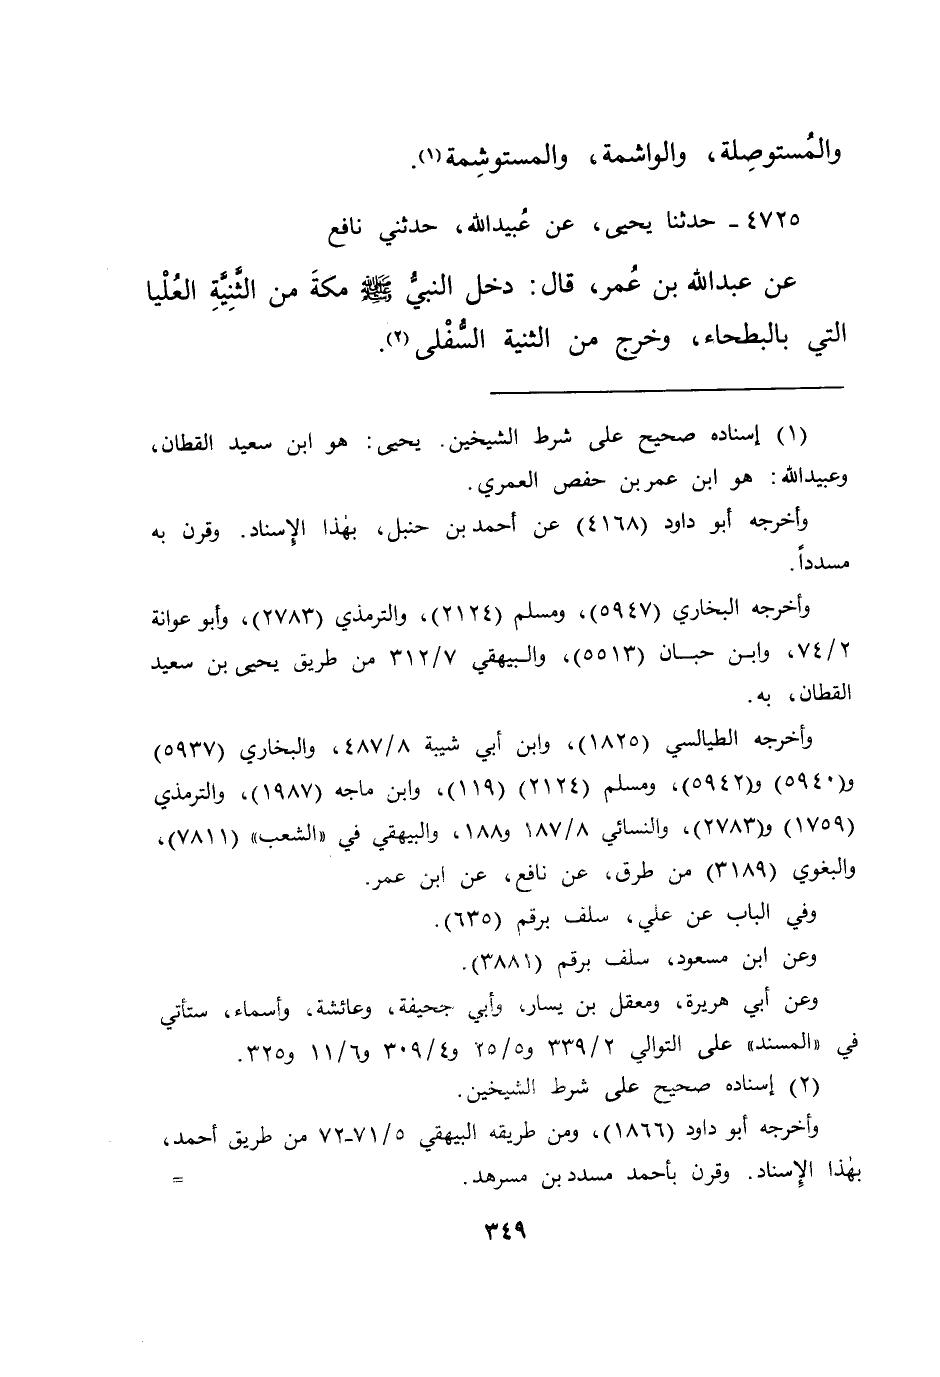 والمُستوصِلة، والواشمة، والمستوشِمة(١).
٤٧٢٥ ـ حدثنا يحيى، عن عُبيدالله، حدثني نافع
عن عبدالله بن عُمر، قال: دخل النبيُّ ﷺ مكةَ من الثَّنِيَّةِ العُلْيا
التي بالبطحاء، وخرج من الثنية السُّفْلى(٢).
(١) إسناده صحيح على شرط الشيخين. يحيى: هو ابن سعيد القطان،
وعبيدالله: هو ابن عمر بن حفص العمري.
وأخرجه أبو داود (٤١٦٨) عن أحمد بن حنبل، بهٰذا الإسناد. وقرن به
مسدداً.
وأخرجه البخاري (٥٩٤٧)، ومسلم (٢١٢٤)، والترمذي (٢٧٨٣)، وأبو عوانة
٧٤/٢، وابن حبان (٥٥١٣)، والبيهقي ٣١٢/٧ من طريق يحيى بن سعيد
القطان، به.
وأخرجه الطيالسي (١٨٢٥)، وابن أبي شيبة ٤٨٧/٨، والبخاري (٥٩٣٧)
و(٥٩٤٠) و(٥٩٤٢)، ومسلم (٢١٢٤) (١١٩)، وابن ماجه (١٩٨٧)، والترمذي
(١٧٥٩) و(٢٧٨٣)، والنسائي ١٨٧/٨ و١٨٨، والبيهقي في «الشعب» (٧٨١١)،
والبغوي (٣١٨٩) من طرق، عن نافع، عن ابن عمر.
وفي الباب عن علي، سلف برقم (٦٣٥).
وعن ابن مسعود، سلف برقم (٣٨٨١).
وعن أبي هريرة، ومعقل بن يسار، وأبي جحيفة، وعائشة، وأسماء، ستأتي
في «المسند» على التوالي ٣٣٩/٢ و٢٥/٥ و٣٠٩/٤ و١١/٦ و٣٢٥.
(٢) إسناده صحيح على شرط الشيخين.
وأخرجه أبو داود (١٨٦٦)، ومن طريقه البيهقي ٧١/٥-٧٢ من طريق أحمد،
بهٰذا الإسناد. وقرن بأحمد مسدد بن مسرهد. =
٣٤٩